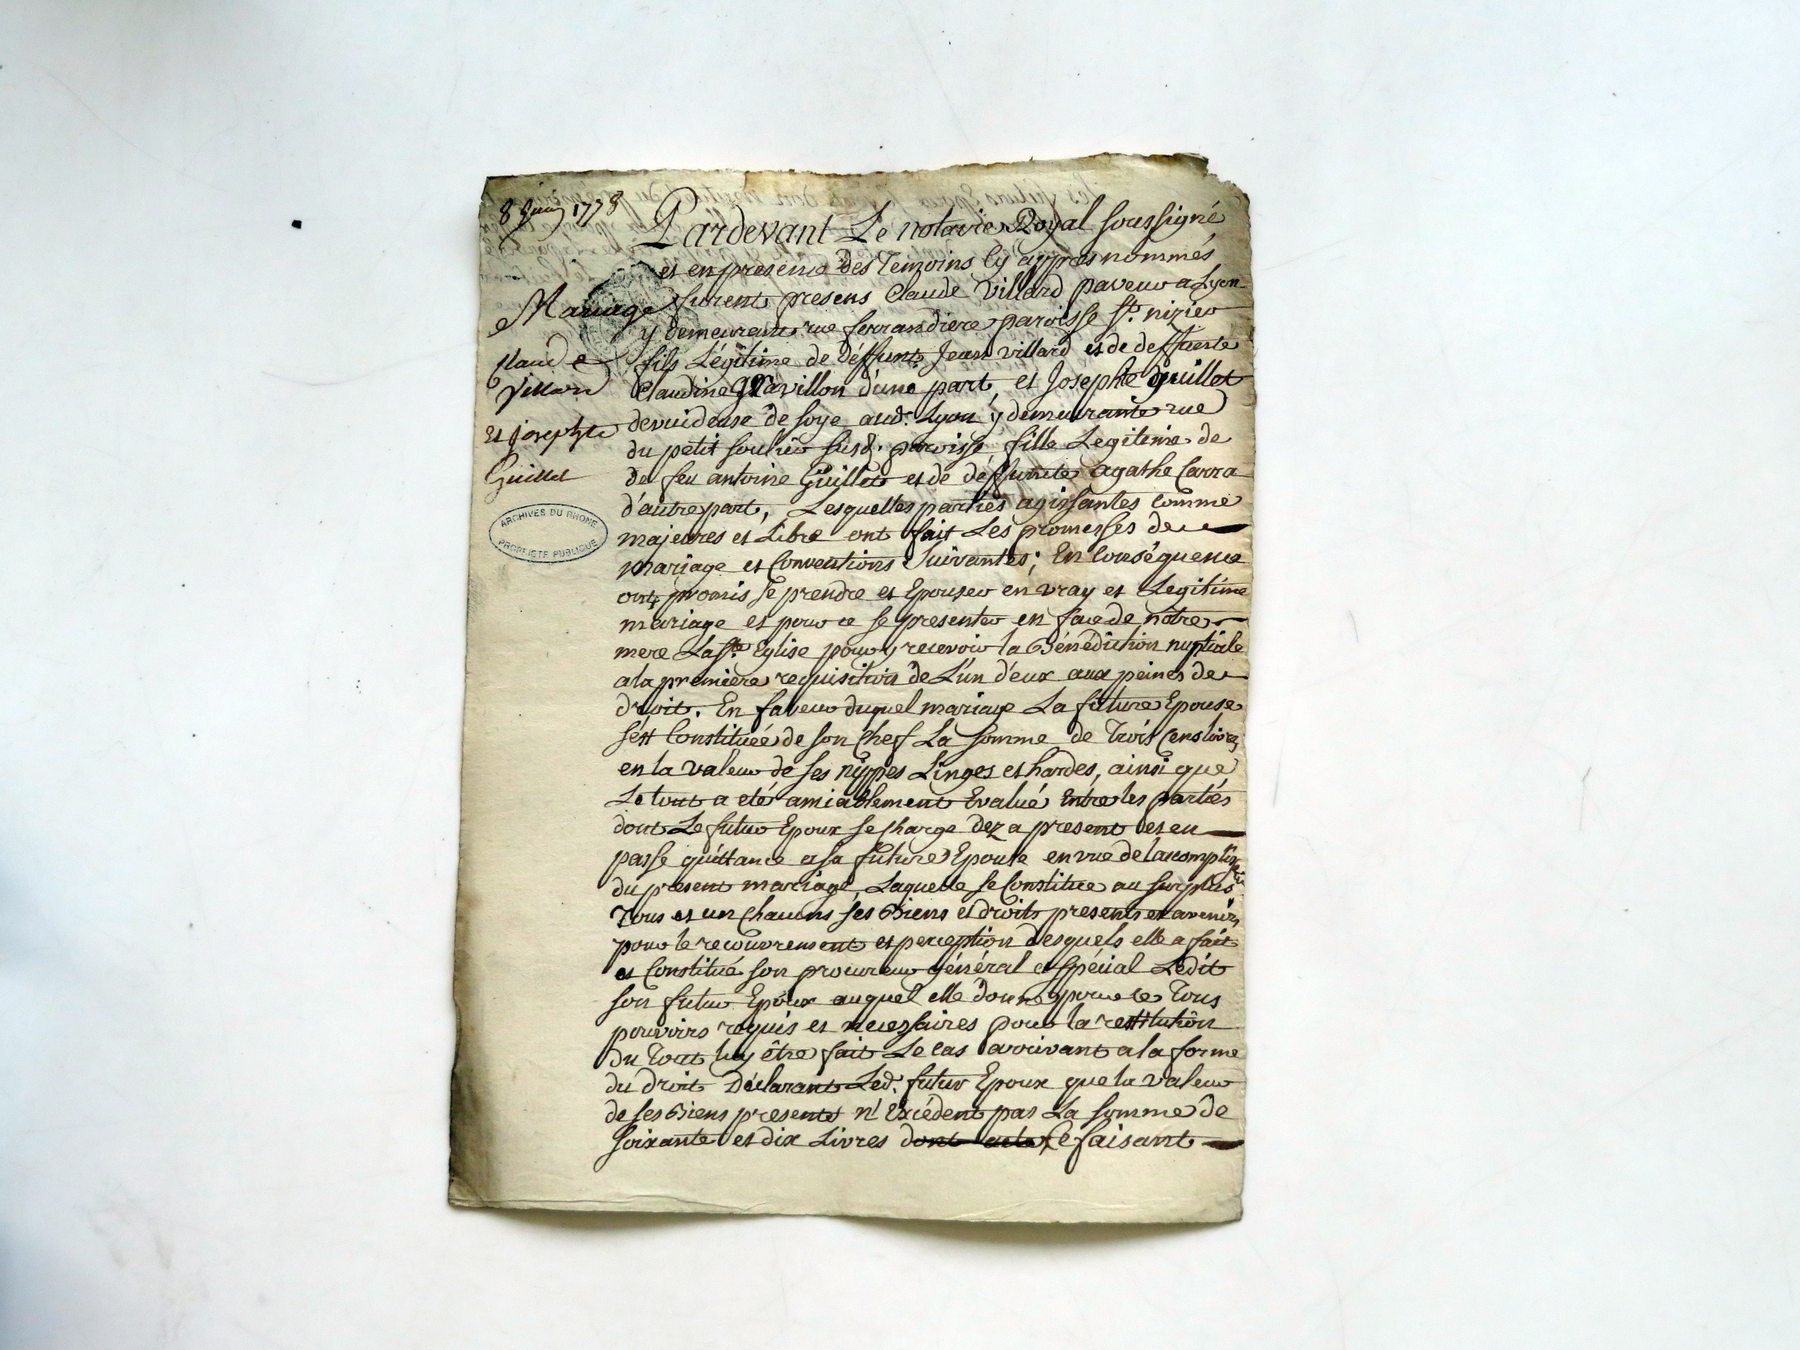 8 Juin 1778
Mariage
Claude
Villard
Et josephte
Guillet
ARCHIVES DU RHONE
PROPRIETE PUBLIQUE
Pardevant Le notaire Royal soussigné
et en presence des Temoins Cy appres nommés
furent presens Claude Villard paveur a Lyon
y demeurant rue ferrandiere paroisse St. nizier
fils Légitime de déffunt Jean villard et de deffuente
Claudine Gravillon d'une part, et Josephte Guillet
devuideuse de soye aud. Lyon y demeurante rue
du petit soulier susd. paroisse fille Legitime de
de feu antoine Guillet et de deffunte agathe Carra
d'autre part, Lesquelles parties agissantes Comme
majeures et Libre ont fait Les promesses de
mariage et Conventions Suivantes; En Conséquence
ont promis se prendre et Epouser en vray et Legitime
mariage et pour ce se presenter en face de notre
mere La Ste. Eglise pour y recevoir la Bénédiction nuptiale
a la premiere requisition de L'un d'eux aux peines de
droit. En faveur duquel mariage La future Epouse
s'est Constituée de son Chef La somme de Trois Cens livres
en la valeur de ses nippes Linges et hardes, ainsi que
Le tout a eté amiablement Evalué Entre les parties
dont Le futur Epoux se Charge dez a present et en
passe quittance a sa future Epouse en vue de lacomplissement
du present mariage, Laquelle se Constitue au surplus
Tous et un Chacuns ses Biens et droits presents et avenir,
pour le recouvrement et perception desquels elle a fait
et Constitué son procureur général et spécial Ledit
son futur Epoux auquel elle donne pour ce Tous
pouvoirs requis et necessaires pour la restitution
du Tout luy être fait Le cas arrivant a la forme
du droit Déclarant Led. futur Epoux que la valeur
de ses Biens presents n'Excédent pas La somme de
soixante et dix Livres dont acte Ce faisant